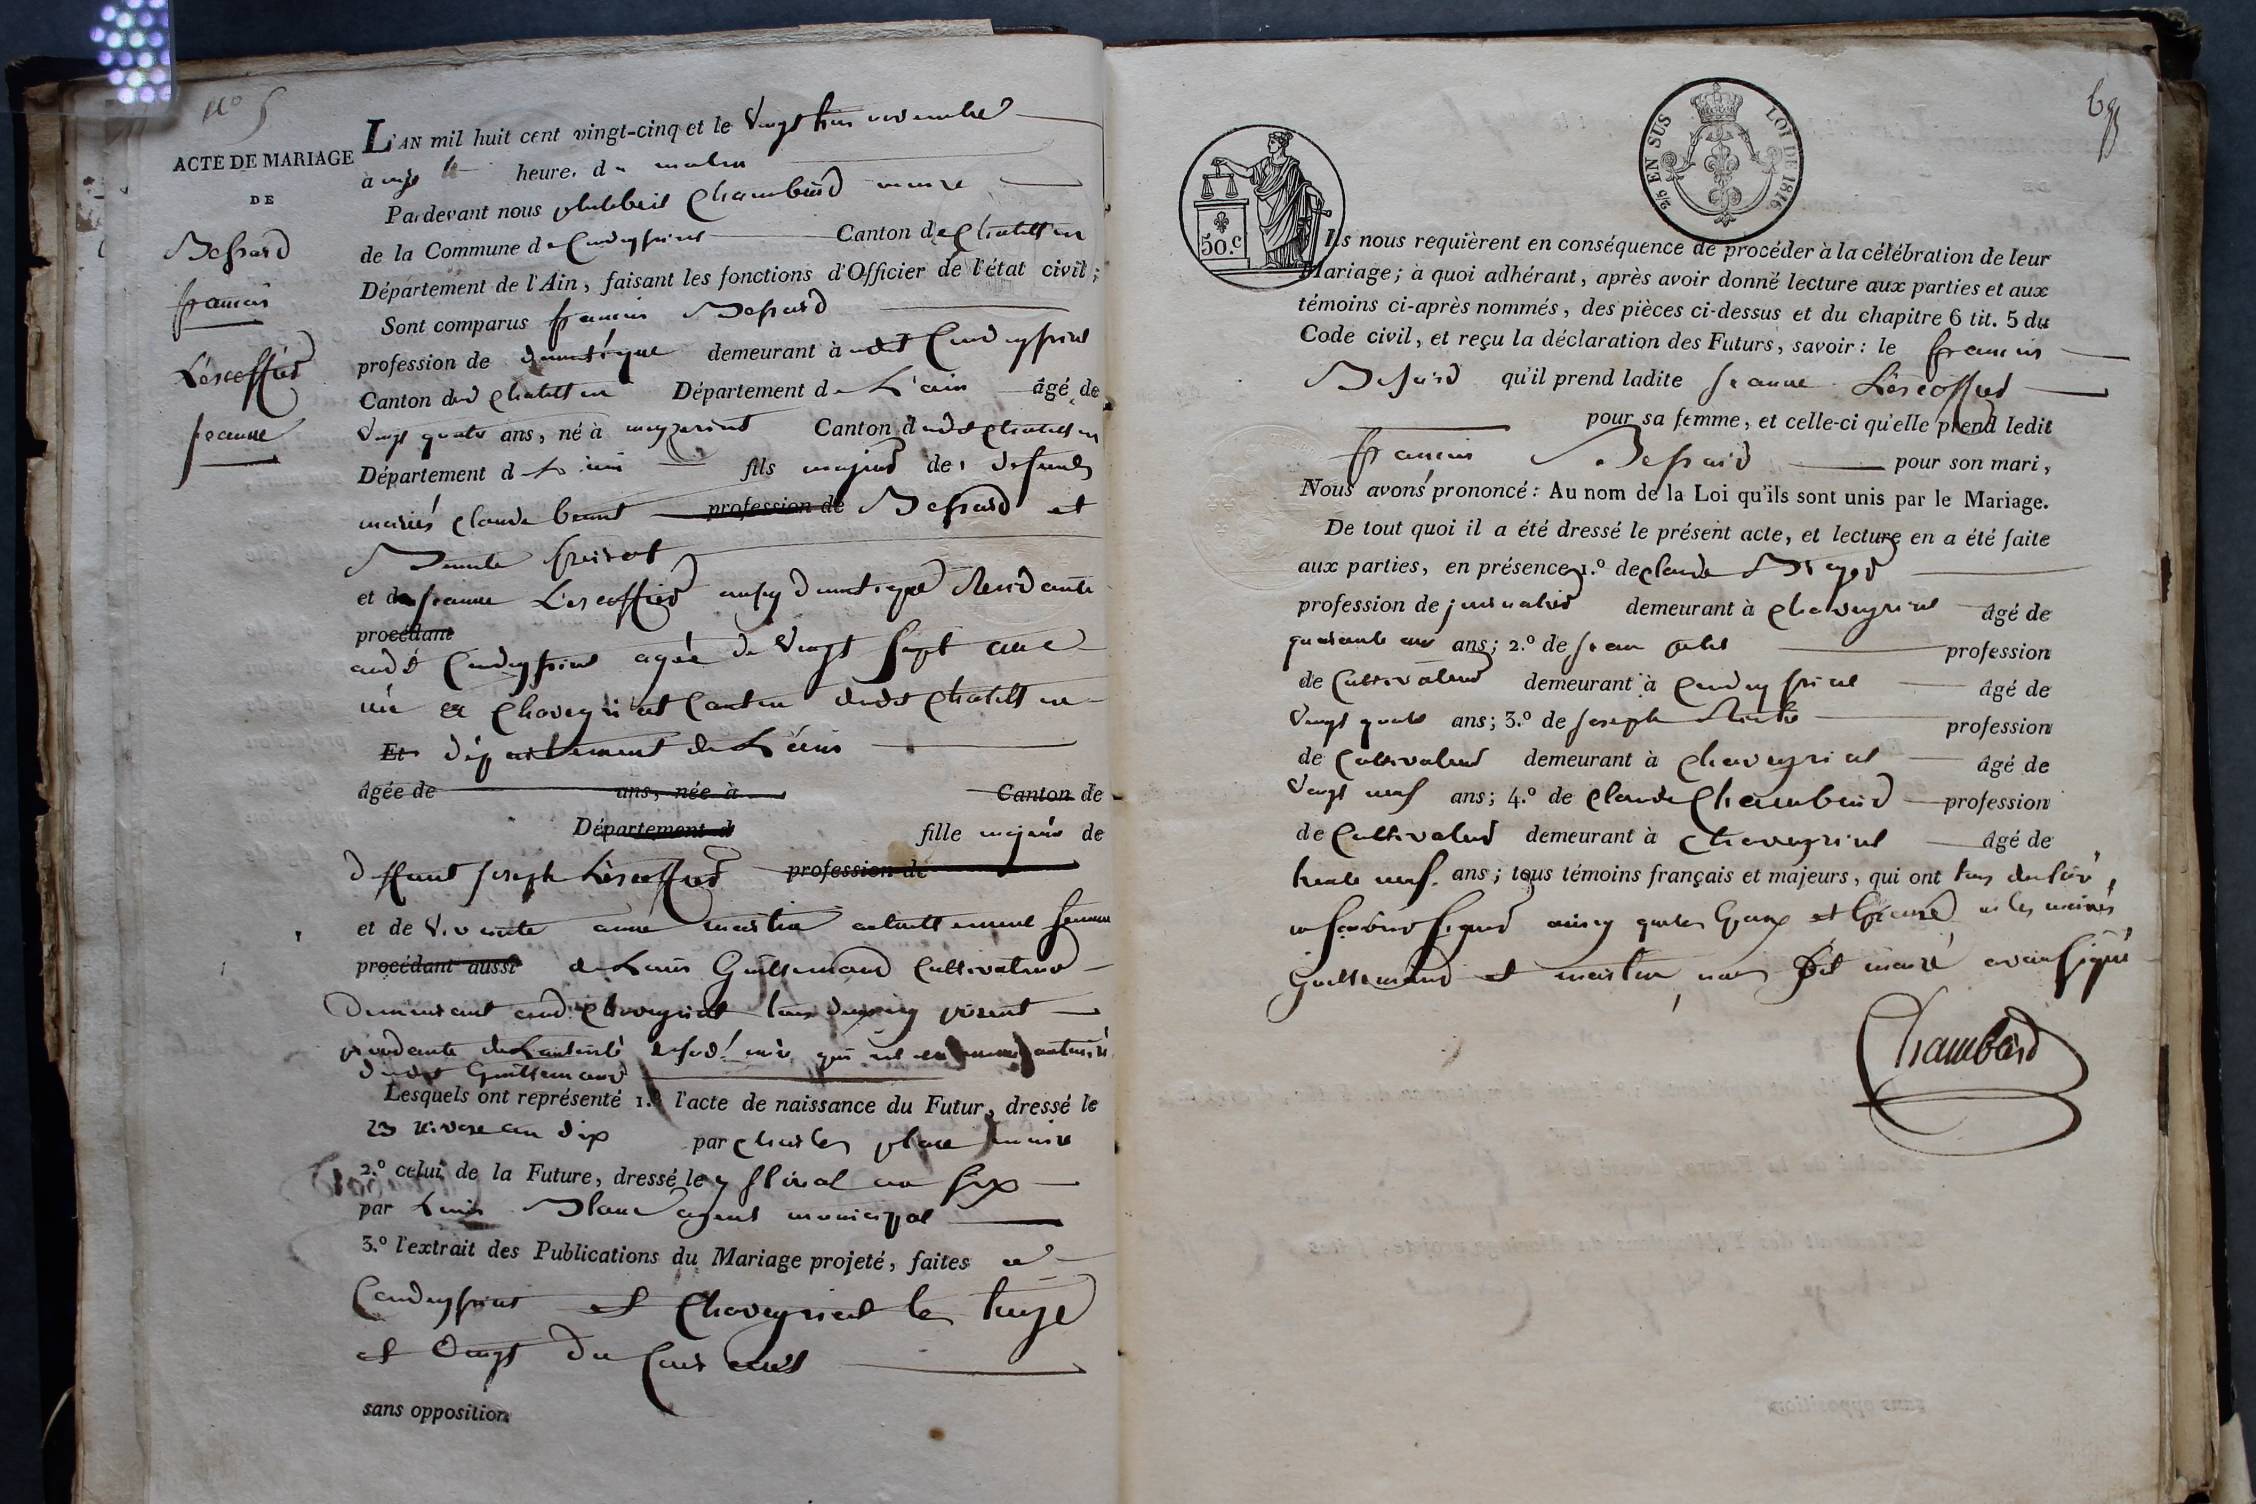 N.o 5
ACTE DE MARIAGE
DE
Bessard
francois
Lescoffier
jeanne
L'AN mil huit cent vingt-cinq et le vingt trois novembre
à onze heure. du matin
Pardevant nous philibert Chambard maire
de la Commune de Condeyssiat Canton de Chatillon
Département de l'Ain, faisant les fonctions d'Officier de l'état civil;
Sont comparus francois Bessard
profession de domestique demeurant à Condeyssiat
Canton dud Chatillon Département de L'ain âgé de
vingt quatre ans, né à Canton dudt Chatillon
Département de L'ain fils majeur de defunts
mariés Claude benoit profession de Bessard et
et de jeanne Lescoffier aussy domestique Residante
procédant
aud Condeyssiat agée de vingt sept ans
née a Chaveyriat Canton dudt Chatillon
Et département de L'ain
âgée de ans, née à Canton de
Département d fille majeure de
deffunt joseph Lescoffier profession de
et de vivante anne martin actuellement femme
procédant aussi de Louis Guillemaud Cultivateur
Demeurant aud Chaveyriat
de L'autorité de sad. mère qui autorisé
dudt Guillemaud
Lesquels ont représenté 1.o l'acte de naissance du Futur, dressé le
23 nivose an dix par charles place maire
2.o celui de la Future, dressé le 7 floréal an six
par Louis Blanc agent municipal
3.o l'extrait des Publications du Mariage projeté, faites a
Condeyssiat et Chaveyriat le treize
et vingt du Courant
sans opposition
2/5 EN SUS LOI DE 1816
50.c
Ils nous requièrent en conséquence de procéder à la célébration de leur
Mariage; à quoi adhérant, après avoir donné lecture aux parties et aux
témoins ci-après nommés, des pièces ci-dessus et du chapitre 6 tit. 5 du
Code civil, et reçu la déclaration des Futurs, savoir: le francois
Bessard qu'il prend ladite jeanne Lescoffier
pour sa femme, et celle-ci qu'elle prend ledit
francois Bessard pour son mari,
Nous avons prononcé: Au nom de la Loi qu'ils sont unis par le Mariage.
De tout quoi il a été dressé le présent acte, et lecture en a été faite
aux parties, en présence 1.o de Claude
profession de journalier demeurant à Chaveyriat âgé de
quarante ans; 2.o de jean profession
de Cultivateur demeurant à Condeyssiat âgé de
vingt quatre ans; 3.o de joseph profession
de Cultivateur demeurant à Chaveyriat âgé de
vingt neuf ans; 4.o de Claude Chambard profession
de Cultivateur demeurant à Chaveyriat âgé de
trente neuf ans; tous témoins français et majeurs, qui ont tous declaré
ne scavoir signer ainsy que les Epoux et les mariés
Guillemaud et martin nous dit maire avons signé
Chambard